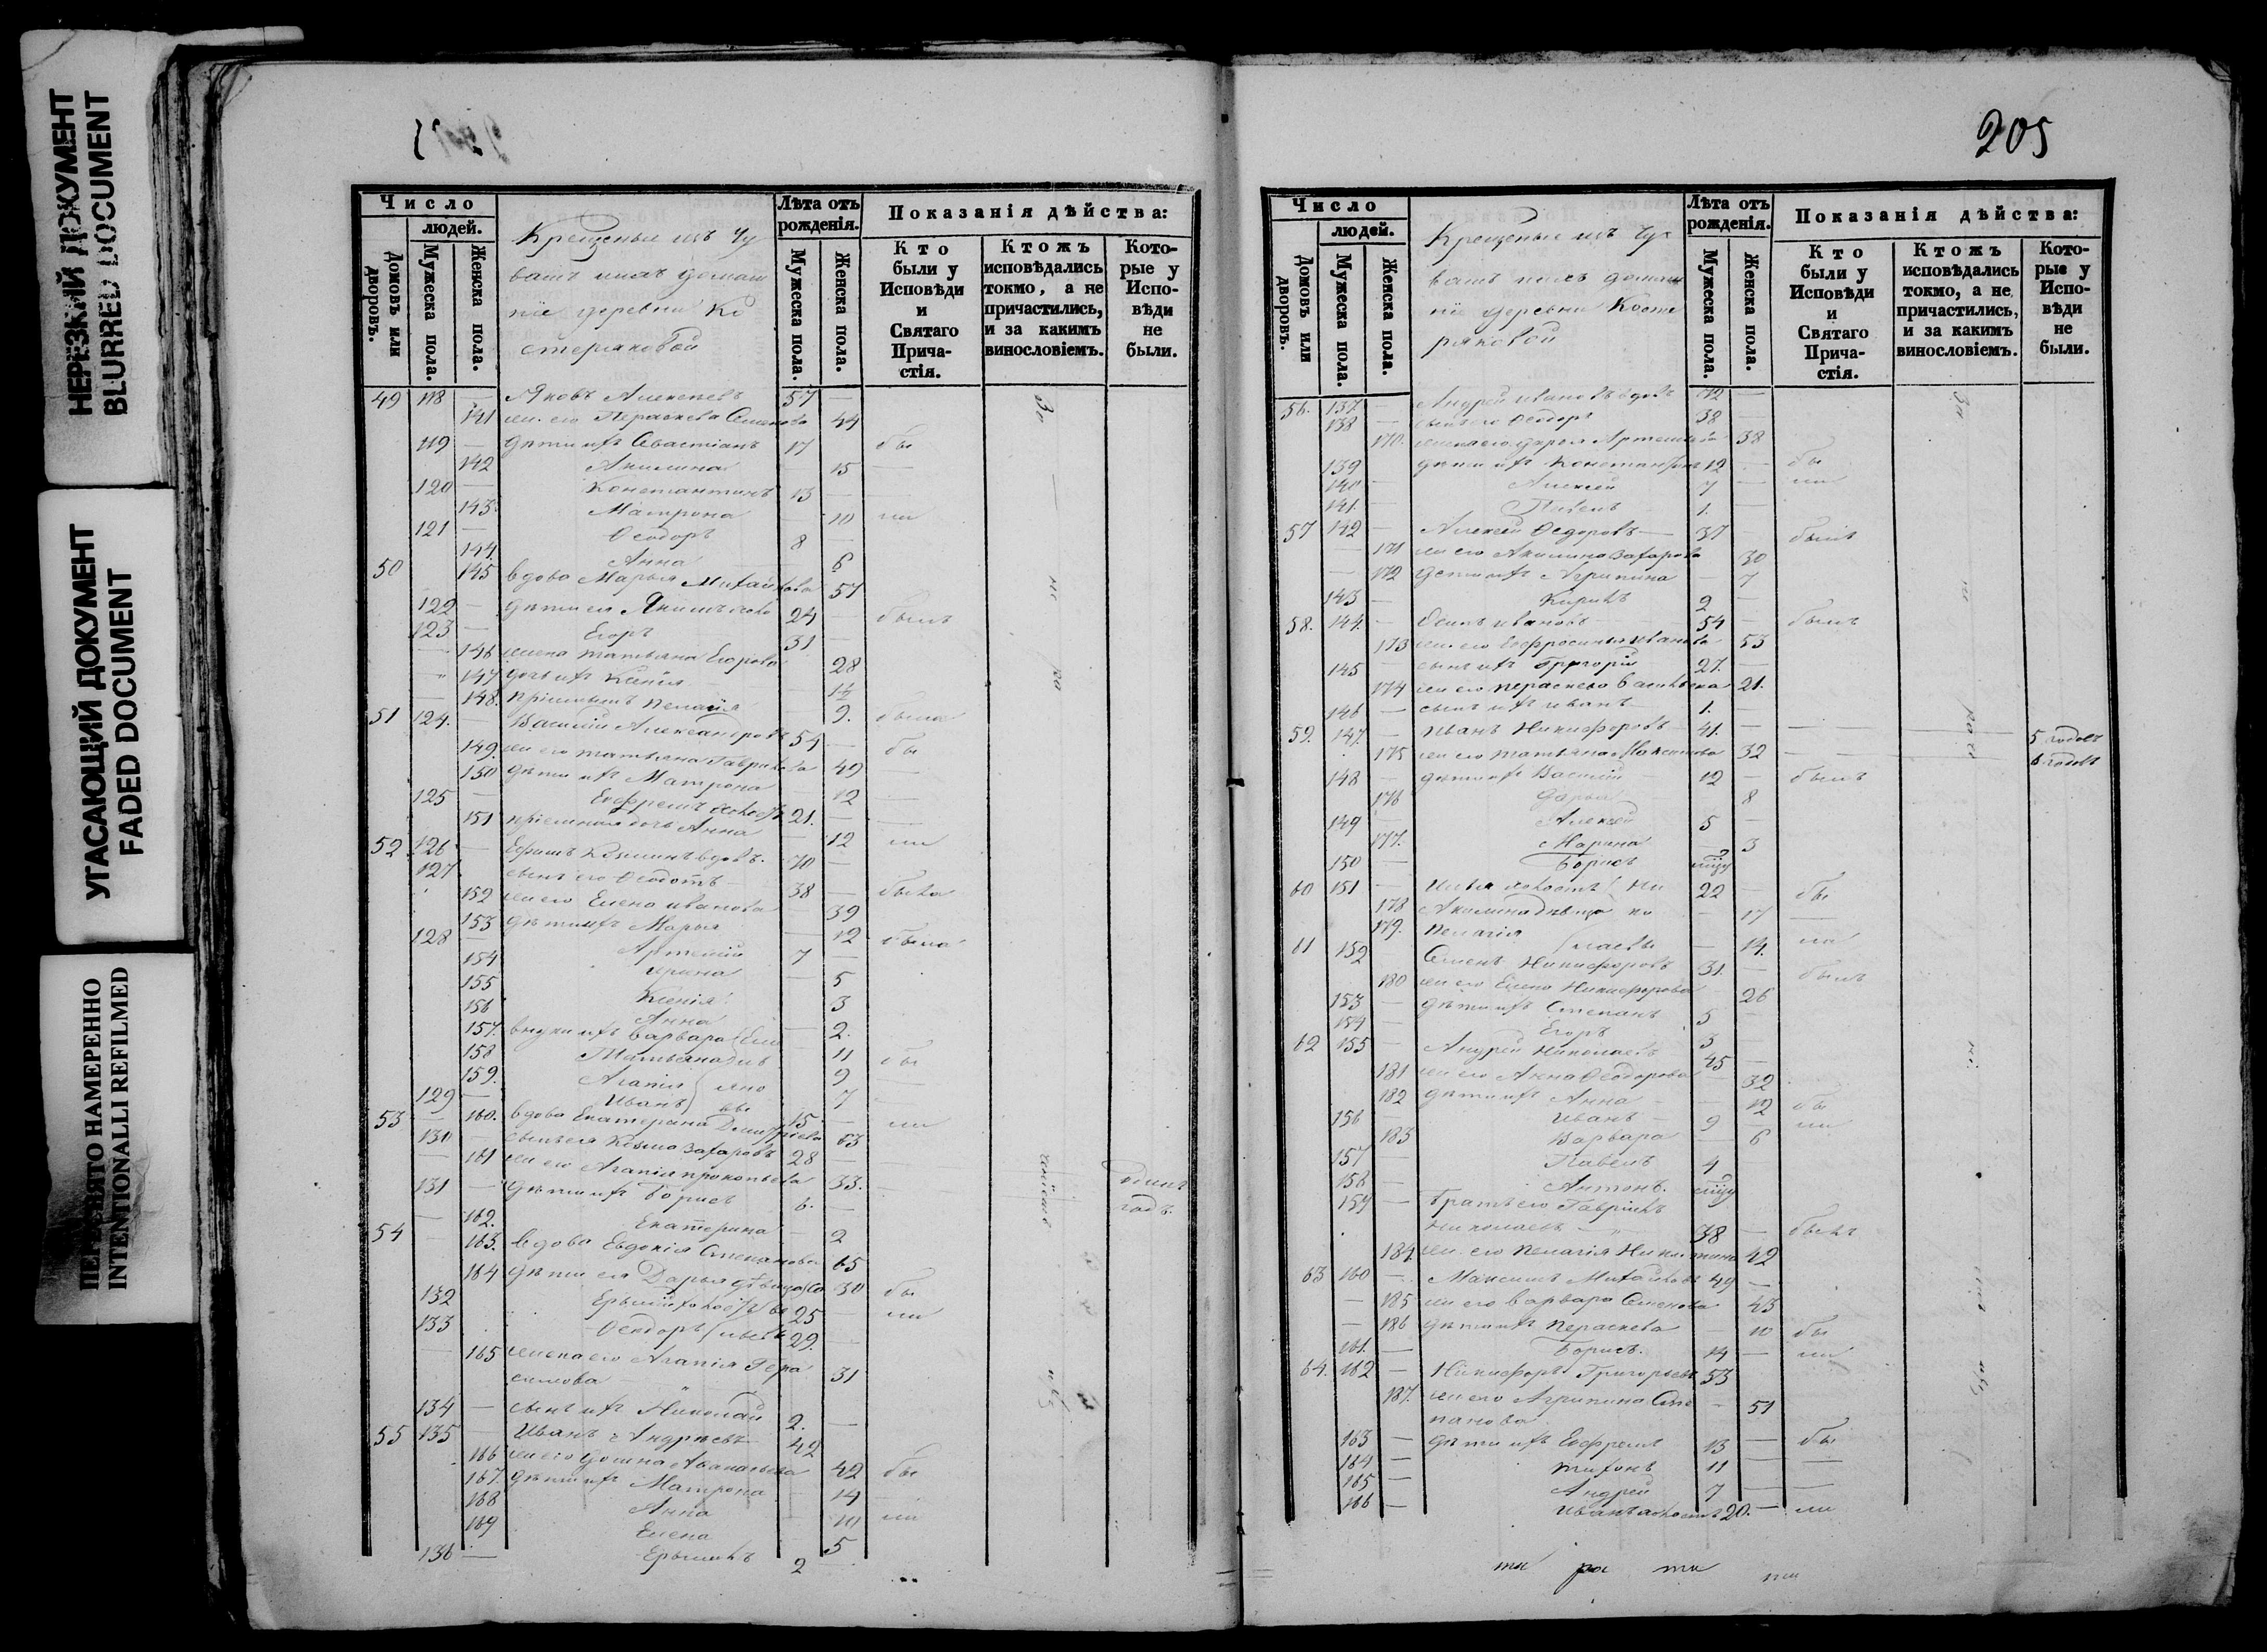 НЕРЕЗКИЙ ДОКУМЕНТ
BLURRED DOCUMENT
УГАСАЮЩИЙ ДОКУМЕНТ
FADED DOCUMENT
ПЕРЕСНЯТО НАМЕРЕННО
INTENTIONALLI REFILMED
Число
людей.
Домовъ или дворовъ.
Мужеска пола.
Женска пола.
Крещеныи изъ Чу
вашъ
деревни Ко
стеряковой
Лѣта отъ рожденія.
Мужеска пола.
Женска пола.
Показанія дѣйства:
Кто были у Исповѣди и Святаго Причастія.
Ктожъ исповѣдались токмо, а не причастились, и за какимъ винословіемъ.
Которые у Исповѣди не были.
49 118 — Яковъ Алексеевъ 57 —
141 жен. его Параскева Семенова 44
119 — дѣти ихъ Севастіанъ 17 бы
142 Акилина 15 —
120 — Константинъ 13 —
143 Матрона 10 ли
121 — Ѳеодоръ 8 —
144 Анна 6
50 145 вдова Марья Михайлова 57
122 — дѣти ея Якимъ 24 — былъ
123 — Егоръ 31 —
146 жена Татьяна Егорова 28
147 дочь ихъ Ксенія
148. Пелагія 9. была
51 124. — Василій Александровъ 54 —
149. жен его Татьяна Гаврилова 49 бы
150 дѣти ихъ Матрона 12 —
125 — Евфремъ холостъ 21. —
151 пріемная дочь Анна 12 ли
52 126 — Ефимъ Козминъ вдовъ. 70 —
127 сынъ его Ѳеодотъ 38 —
152 жен его Елена Иванова 39
153 дѣти ихъ Марья 12 была
128 — Артемій 7 —
154 Ирина 5
155 Ксенія 3
156 Анна 2.
157. внуки ихъ Варвара 11 бы
158 Татьяна 9 —
159. Агапія 7 —
129 — Иванъ 15 — ли
53 160. вдова Екатерина Дмитріева 63
130 — сынъ ея Козма Захаровъ 28 —
161 жен его Агапія Прокопьева 33. — одинъ
131 — дѣти ихъ Борисъ 6. — годъ.
162. Екатерина 2
54 163. вдова Евдокія Степанова 65
164 дѣти ея Дарья дѣвица 30 бы
132 холостъ 25 ли
133 Ѳеодоръ 29. —
165 жена его Агапія Гера
симова 31
134 — сынъ ихъ Николай 2. —
55 135 — Иванъ Андреевъ 42
166 жен его Домна Афанасьева 42 бы
167. дѣти ихъ Матрона 14 —
168 Анна 10 ли
169 Елена 5
136 — 2
205
Число
людей.
Домовъ или дворовъ.
Мужеска пола.
Женска пола.
Крещеныи изъ Чу
вашъ
деревни Косте
ряковой
Лѣта отъ рожденія.
Мужеска пола.
Женска пола.
Показанія дѣйства:
Кто были у Исповѣди и Святаго Причастія.
Ктожъ исповѣдались токмо, а не причастились, и за какимъ винословіемъ.
Которые у Исповѣди не были.
56. 137 — Андрей Ивановъ вдовъ 72 —
138 — сынъ его Ѳеодоръ 38
170. жена его Дарья Артемьева 38
139 дѣти ихъ Константинъ 12 — бы
140 — Алексей 7 — ли
141. Павелъ 1. —
57 142 — Алексей Ѳедоровъ — 37 — былъ
171 жен его Акилина Захарова 30
172 дѣти ихъ Агрипина — 7
143 — Кирикъ 2 —
58. 144. — Осипъ Ивановъ 54 — былъ
173 жен. его Евфросинья Иванова 53
145 — сынъ ихъ Григорій 27. —
174 жен его Параскева Васильева 21.
146 — сынъ ихъ Иванъ 1. —
59. 147. — Иванъ Никифоровъ 41. — 5 годовъ
175 жен его Татьяна Максимова 32 — 6 годовъ
148 — дѣти ихъ Василій 12 — былъ
176 Дарья 8
149 — Алексей 5 —
177. Марина 3
150 — Борисъ
60 151 — Илья холостъ Ни 22 — бы
178 Акилина дѣвица ки 17 —
179. Пелагія 14. ли
61 152 Семенъ Никифоровъ 31. — былъ
180 жен его Елена Никифорова 26
153 — дѣти ихъ Степанъ 5 —
154 — Егоръ 3 —
62 155 — Андрей Николаевъ 45 —
181 жен его Анна Ѳеодорова 32
182 дѣти ихъ Анна — 12 бы
156 Иванъ — 9 — ли
183 Варвара — 6
157 — Павелъ 4
158 — Антонъ.
159 — братъ его Гаврилъ
Николаевъ 38 — былъ
184 жен. его Пелагія Никитина 42
63 160 — Максимъ Михайловъ 49 —
185 жен его Варвара Семенова 43
186 дѣти ихъ Параскева — 10 бы
161. — Борисъ. 14 — ли
64. 162 — Никифоръ Григорьевъ 53
187. жен его Агрипина Сте
панова — 51
163 — дѣти ихъ Евфремъ 13 — бы
164 — Тихонъ 11 — —
165 — Андрей 7 — —
166 — Иванъ холостъ 20. — ли